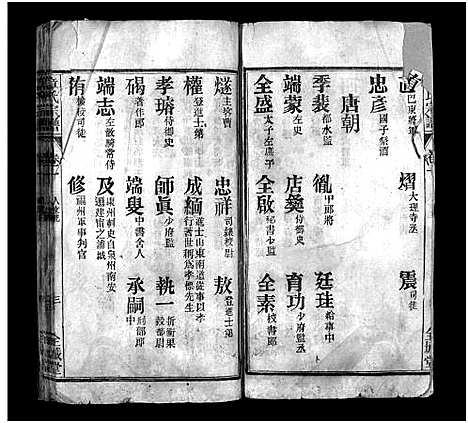 巴東將軍
熠 大理寺丞
震 司徒
忠彥 國子祭酒
唐朝
季裴 都水監
胤 甲部將
廷珪 給事中
端蒙 左史
店藥 侍御史
育功 少府監
全盛 太子左庶子
全啟 秘書少監
全素 校書郎
燧 主客曹
忠祥 司錄校尉
敖 登進士第
權 登進士第
成緬 進士山東南道從事以孝行著於世稱為孝標先生
孝璿 侍御史
師貞 少府監
執一 折衝果毅都尉
碣 著作郎
端叟 中書舍人
承嗣 刑部郎
端志 左散騎常侍
及 康州刺史自泉州南安遷建甯之浦城
侑 檢校司徒
修 福州軍事判官
全城堂